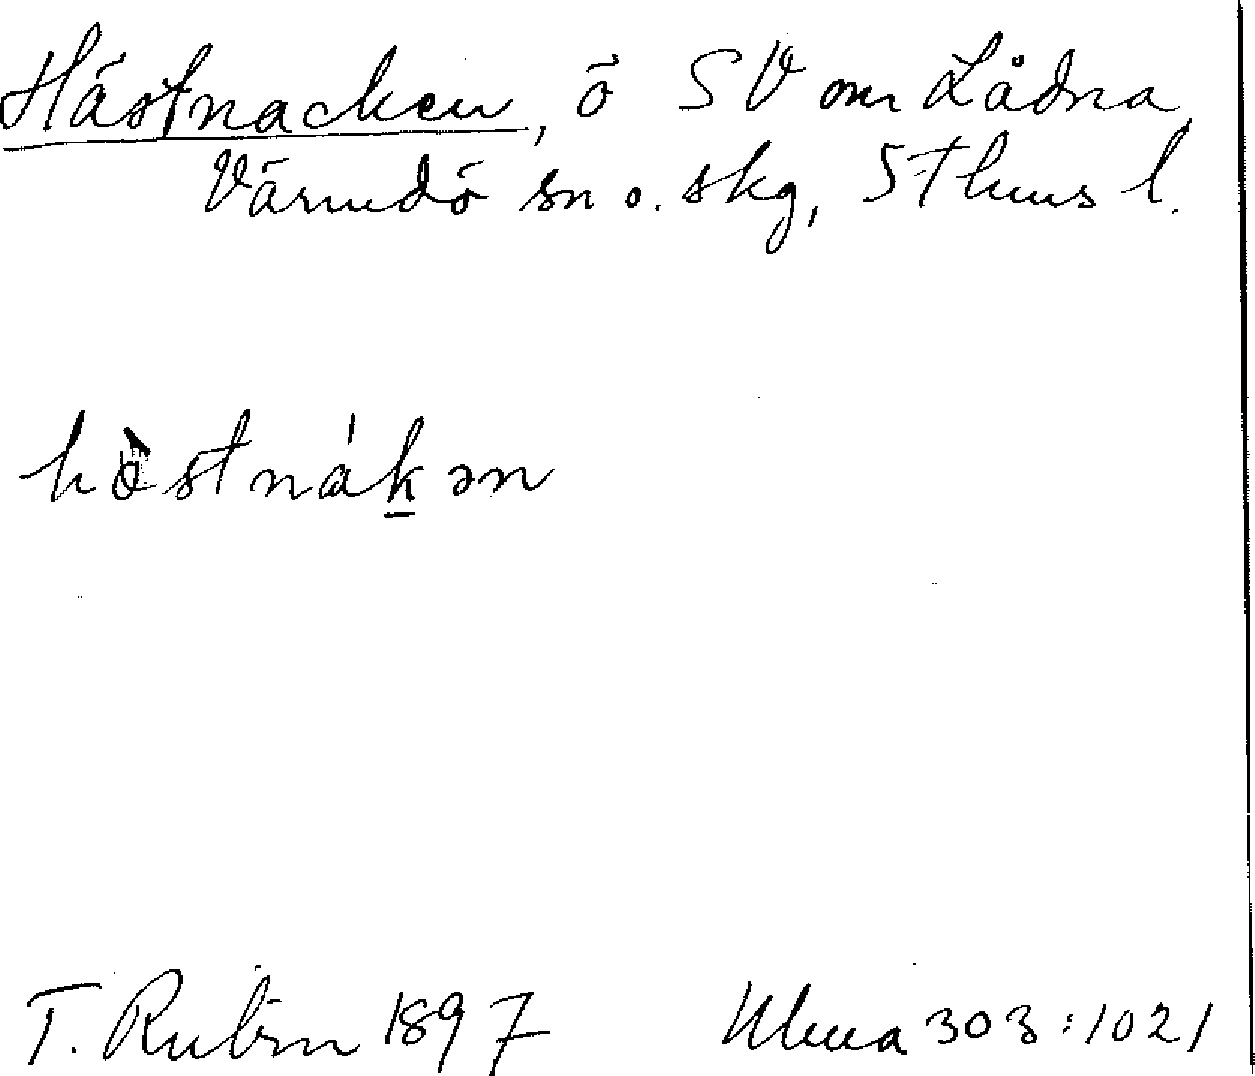 Hästnacken, ö SV om Lådna
Värmdö sn o. skg, Sthms l.
hästnák̲ən
T. Rubin 1897 Uluua 303:1021